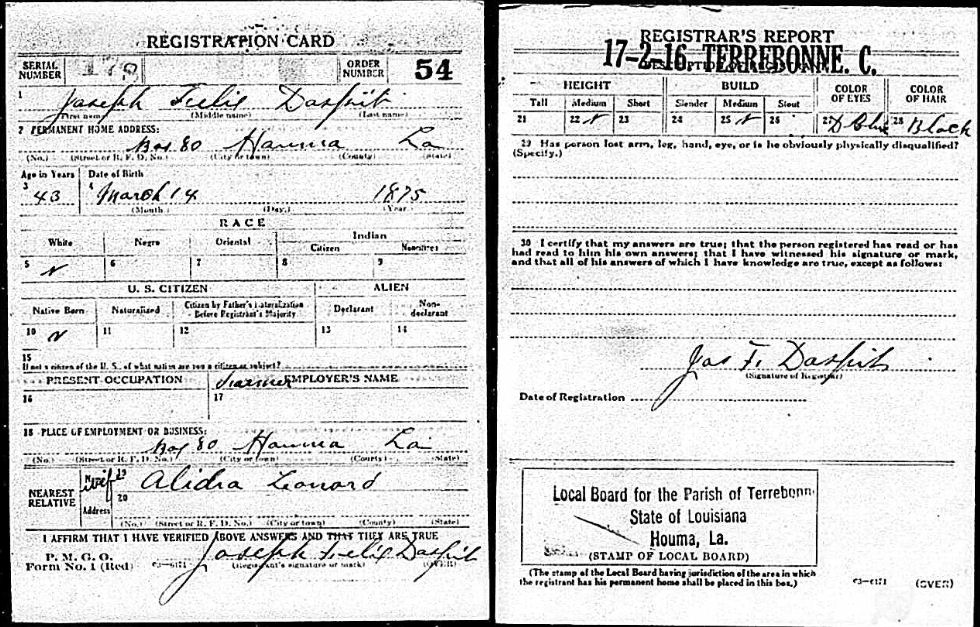 REGISTRATION CARD
SERIAL NUMBER 179 ORDER NUMBER 54
1 Joseph Felix Daspit
(First name) (Middle name) (Last name)
2 PERMANENT HOME ADDRESS:
Box 80 Houma La
(No.) (Street or R. F. D. No.) (City or town) (County) (State)
Age in Years Date of Birth
3 43 4 March 14 1875
(Month.) (Day.) (Year.)
RACE
White Negro Oriental Indian
Citizen Noncitizen
5 6 7 8 9
U. S. CITIZEN ALIEN
Native Born Naturalized Citizen by Father's Naturalization Before Registrant's Majority Declarant Non-declarant
10 11 12 13 14
15
If not a citizen of the U. S., of what nation are you a citizen or subject?
PRESENT OCCUPATION EMPLOYER'S NAME
16 Farmer 17
18 PLACE OF EMPLOYMENT OR BUSINESS:
Box 80 Houma La
(No.) (Street or R. F. D. No.) (City or town) (County) (State)
NEAREST RELATIVE Name 19 wife Alidia Leonard
Address 20
(No.) (Street or R. F. D. No.) (City or town) (County) (State)
I AFFIRM THAT I HAVE VERIFIED ABOVE ANSWERS AND THAT THEY ARE TRUE
P. M. G. O.
Form No. 1 (Red) 03-6171 Joseph Felix Daspit
(Registrant's signature or mark) (OVER)
REGISTRAR'S REPORT
17-2-16 TERREBONNE. C.
DESCRIPTION OF REGISTRANT
HEIGHT BUILD COLOR OF EYES COLOR OF HAIR
Tall Medium Short Slender Medium Stout
21 22 23 24 25 26 27 D Blue 28 Black
29 Has person lost arm, leg, hand, eye, or is he obviously physically disqualified?
(Specify.)
30 I certify that my answers are true; that the person registered has read or has
had read to him his own answers; that I have witnessed his signature or mark,
and that all of his answers of which I have knowledge are true, except as follows:
Jos F. Daspit
(Signature of Registrar)
Date of Registration
Local Board for the Parish of Terrebonne
State of Louisiana
Houma, La.
(STAMP OF LOCAL BOARD)
(The stamp of the Local Board having jurisdiction of the area in which
the registrant has his permanent home shall be placed in this box.)
03-6171 (OVER)